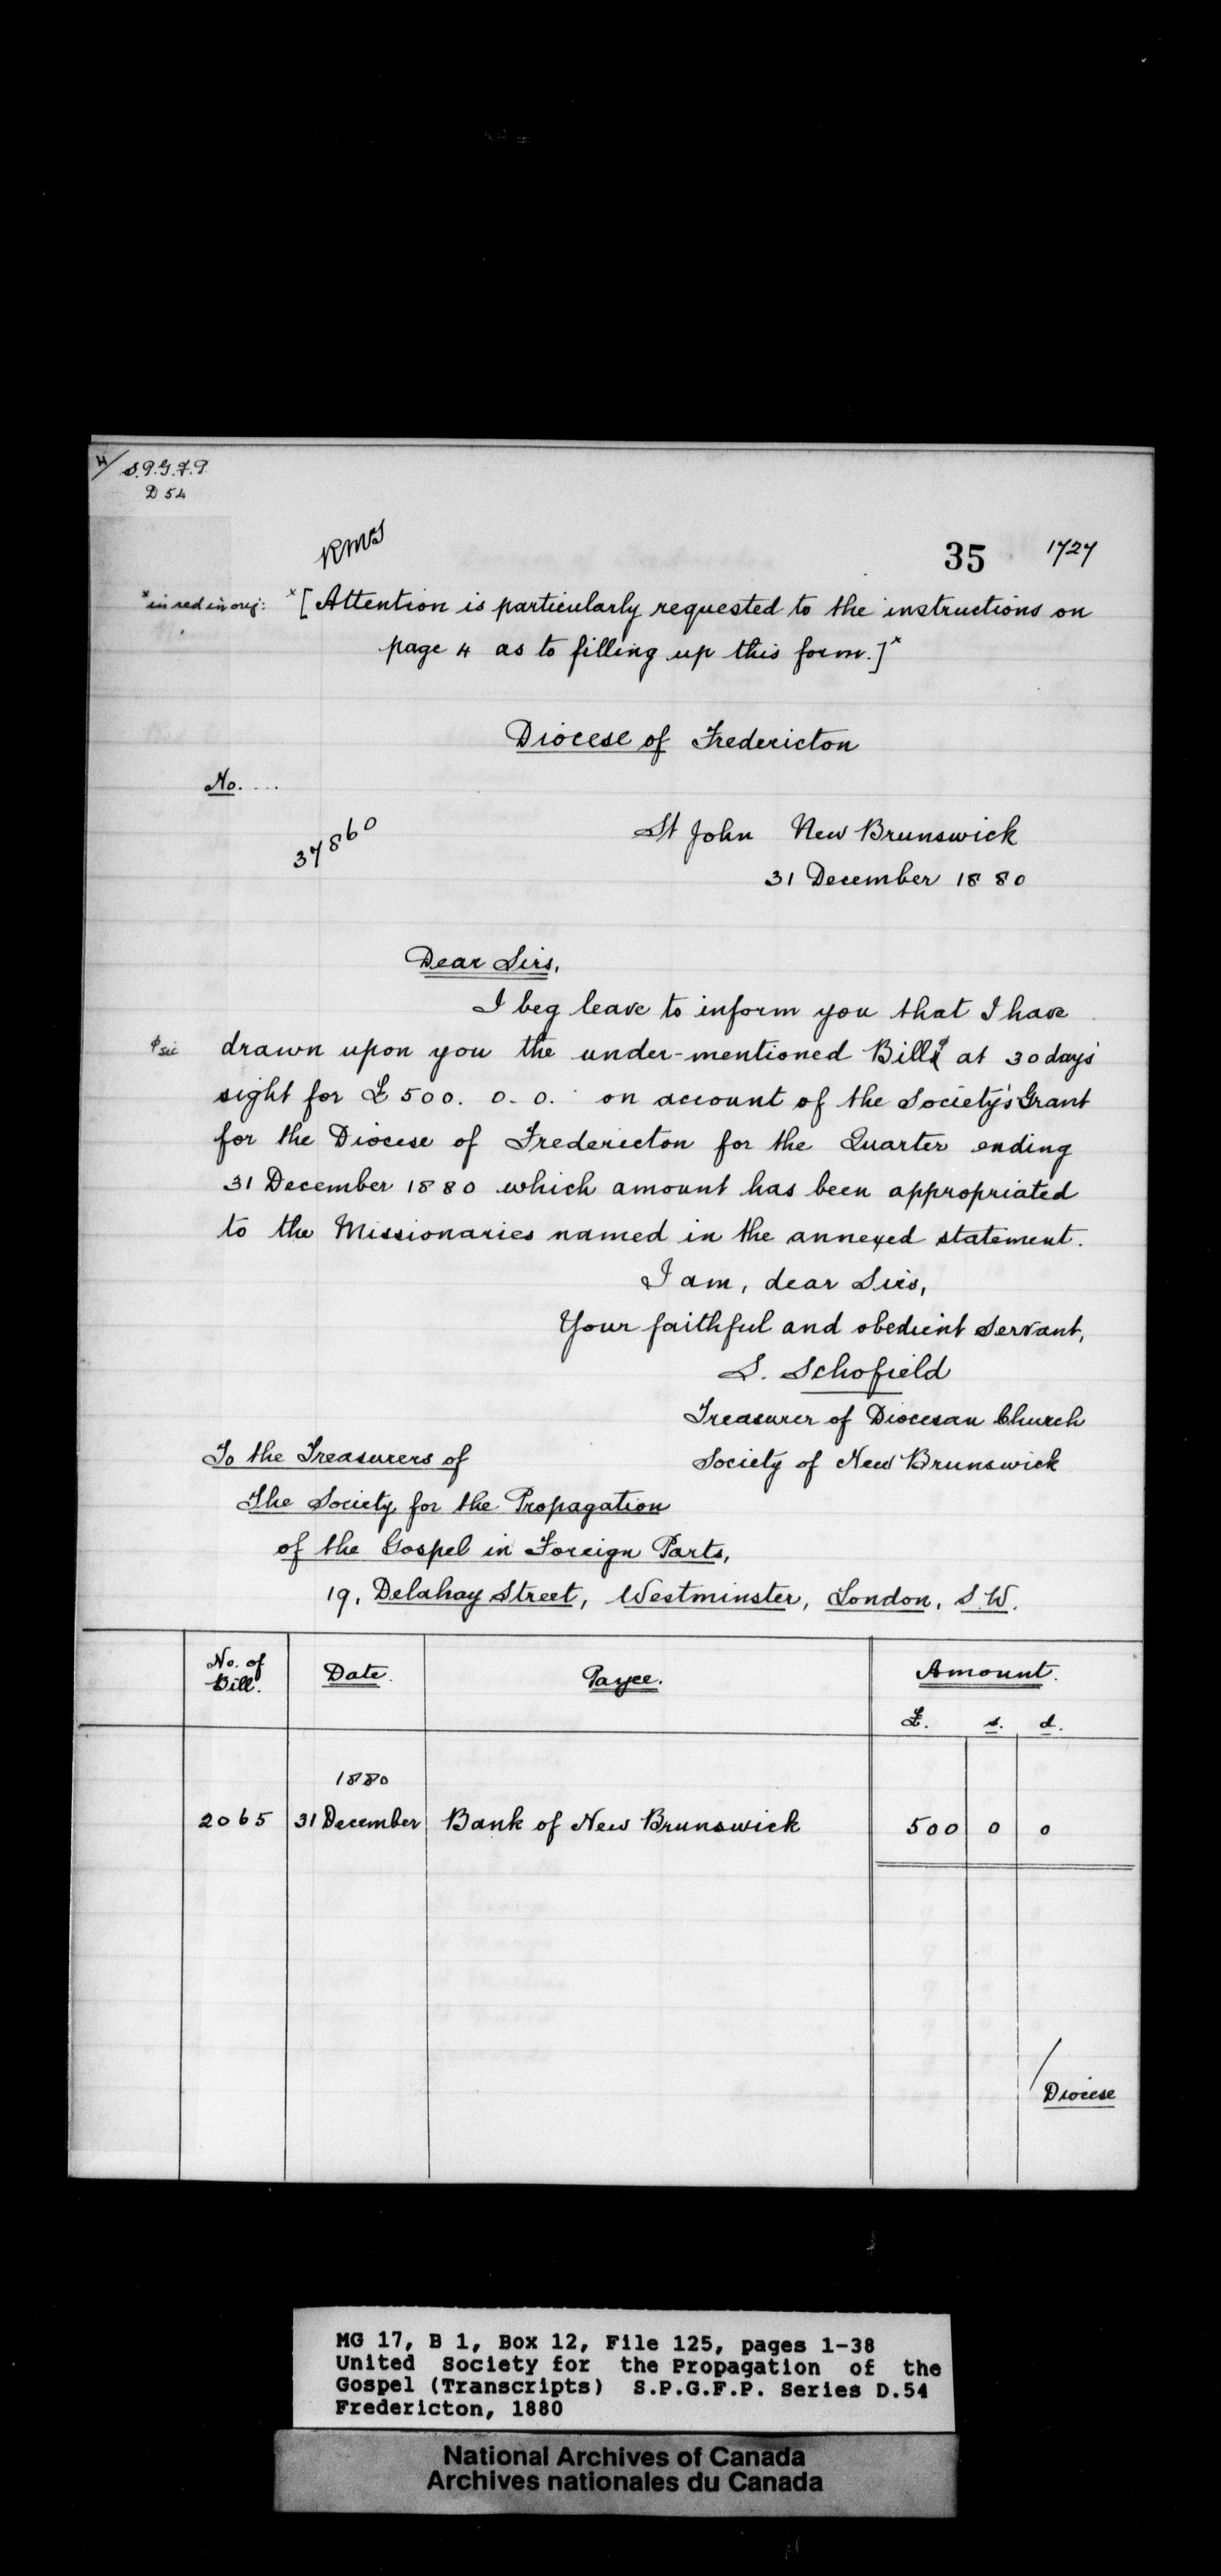 4/ S.P.G.F.P.
D 54
RMS
35 1727
x in red in orig: x[Attention is particularly requested to the instructions on
page 4 as to filling up this form.]x
Diocese of Fredericton
No. ....
37860
St John New Brunswick
31 December 1880
Dear Sirs,
I beg leave to inform you that I have
ϕ sic drawn upon you the under-mentioned Bill ϕ at 30 days'
sight for £500. 0. 0. on account of the Society's Grant
for the Diocese of Fredericton for the Quarter ending
31 December 1880 which amount has been appropriated
to the Missionaries named in the annexed statement.
I am, dear Sirs,
Your faithful and obedient Servant,
S. Schofield
Treasurer of Diocesan Church
Society of New Brunswick
To the Treasurers of
The Society for the Propagation
of the Gospel in Foreign Parts,
19, Delahay Street, Westminster, London, S.W.
No. of Bill. Date. Payee. Amount.
£. s. d.
1880
2065 31 December Bank of New Brunswick 500 0 0
/Diocese
MG 17, B 1, Box 12, File 125, pages 1-38
United Society for the Propagation of the
Gospel (Transcripts) S.P.G.F.P. Series D.54
Fredericton, 1880
National Archives of Canada
Archives nationales du Canada